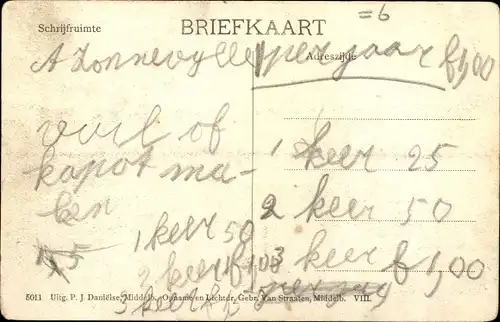 =6
Schrijfruimte BRIEFKAART
Adreszijde
A Zonnevylle per jaar f 1,00
vuil of
kapot ma-
ken
1 keer 50
2 keer f 1,00
3 keer
1 keer 25
2 keer 50
3 keer f 1,00
5011 Uitg. P. J. Daniëlse, Middelb. Opname en Lichtdr. Gebr. Van Straaten, Middelb. VIII.